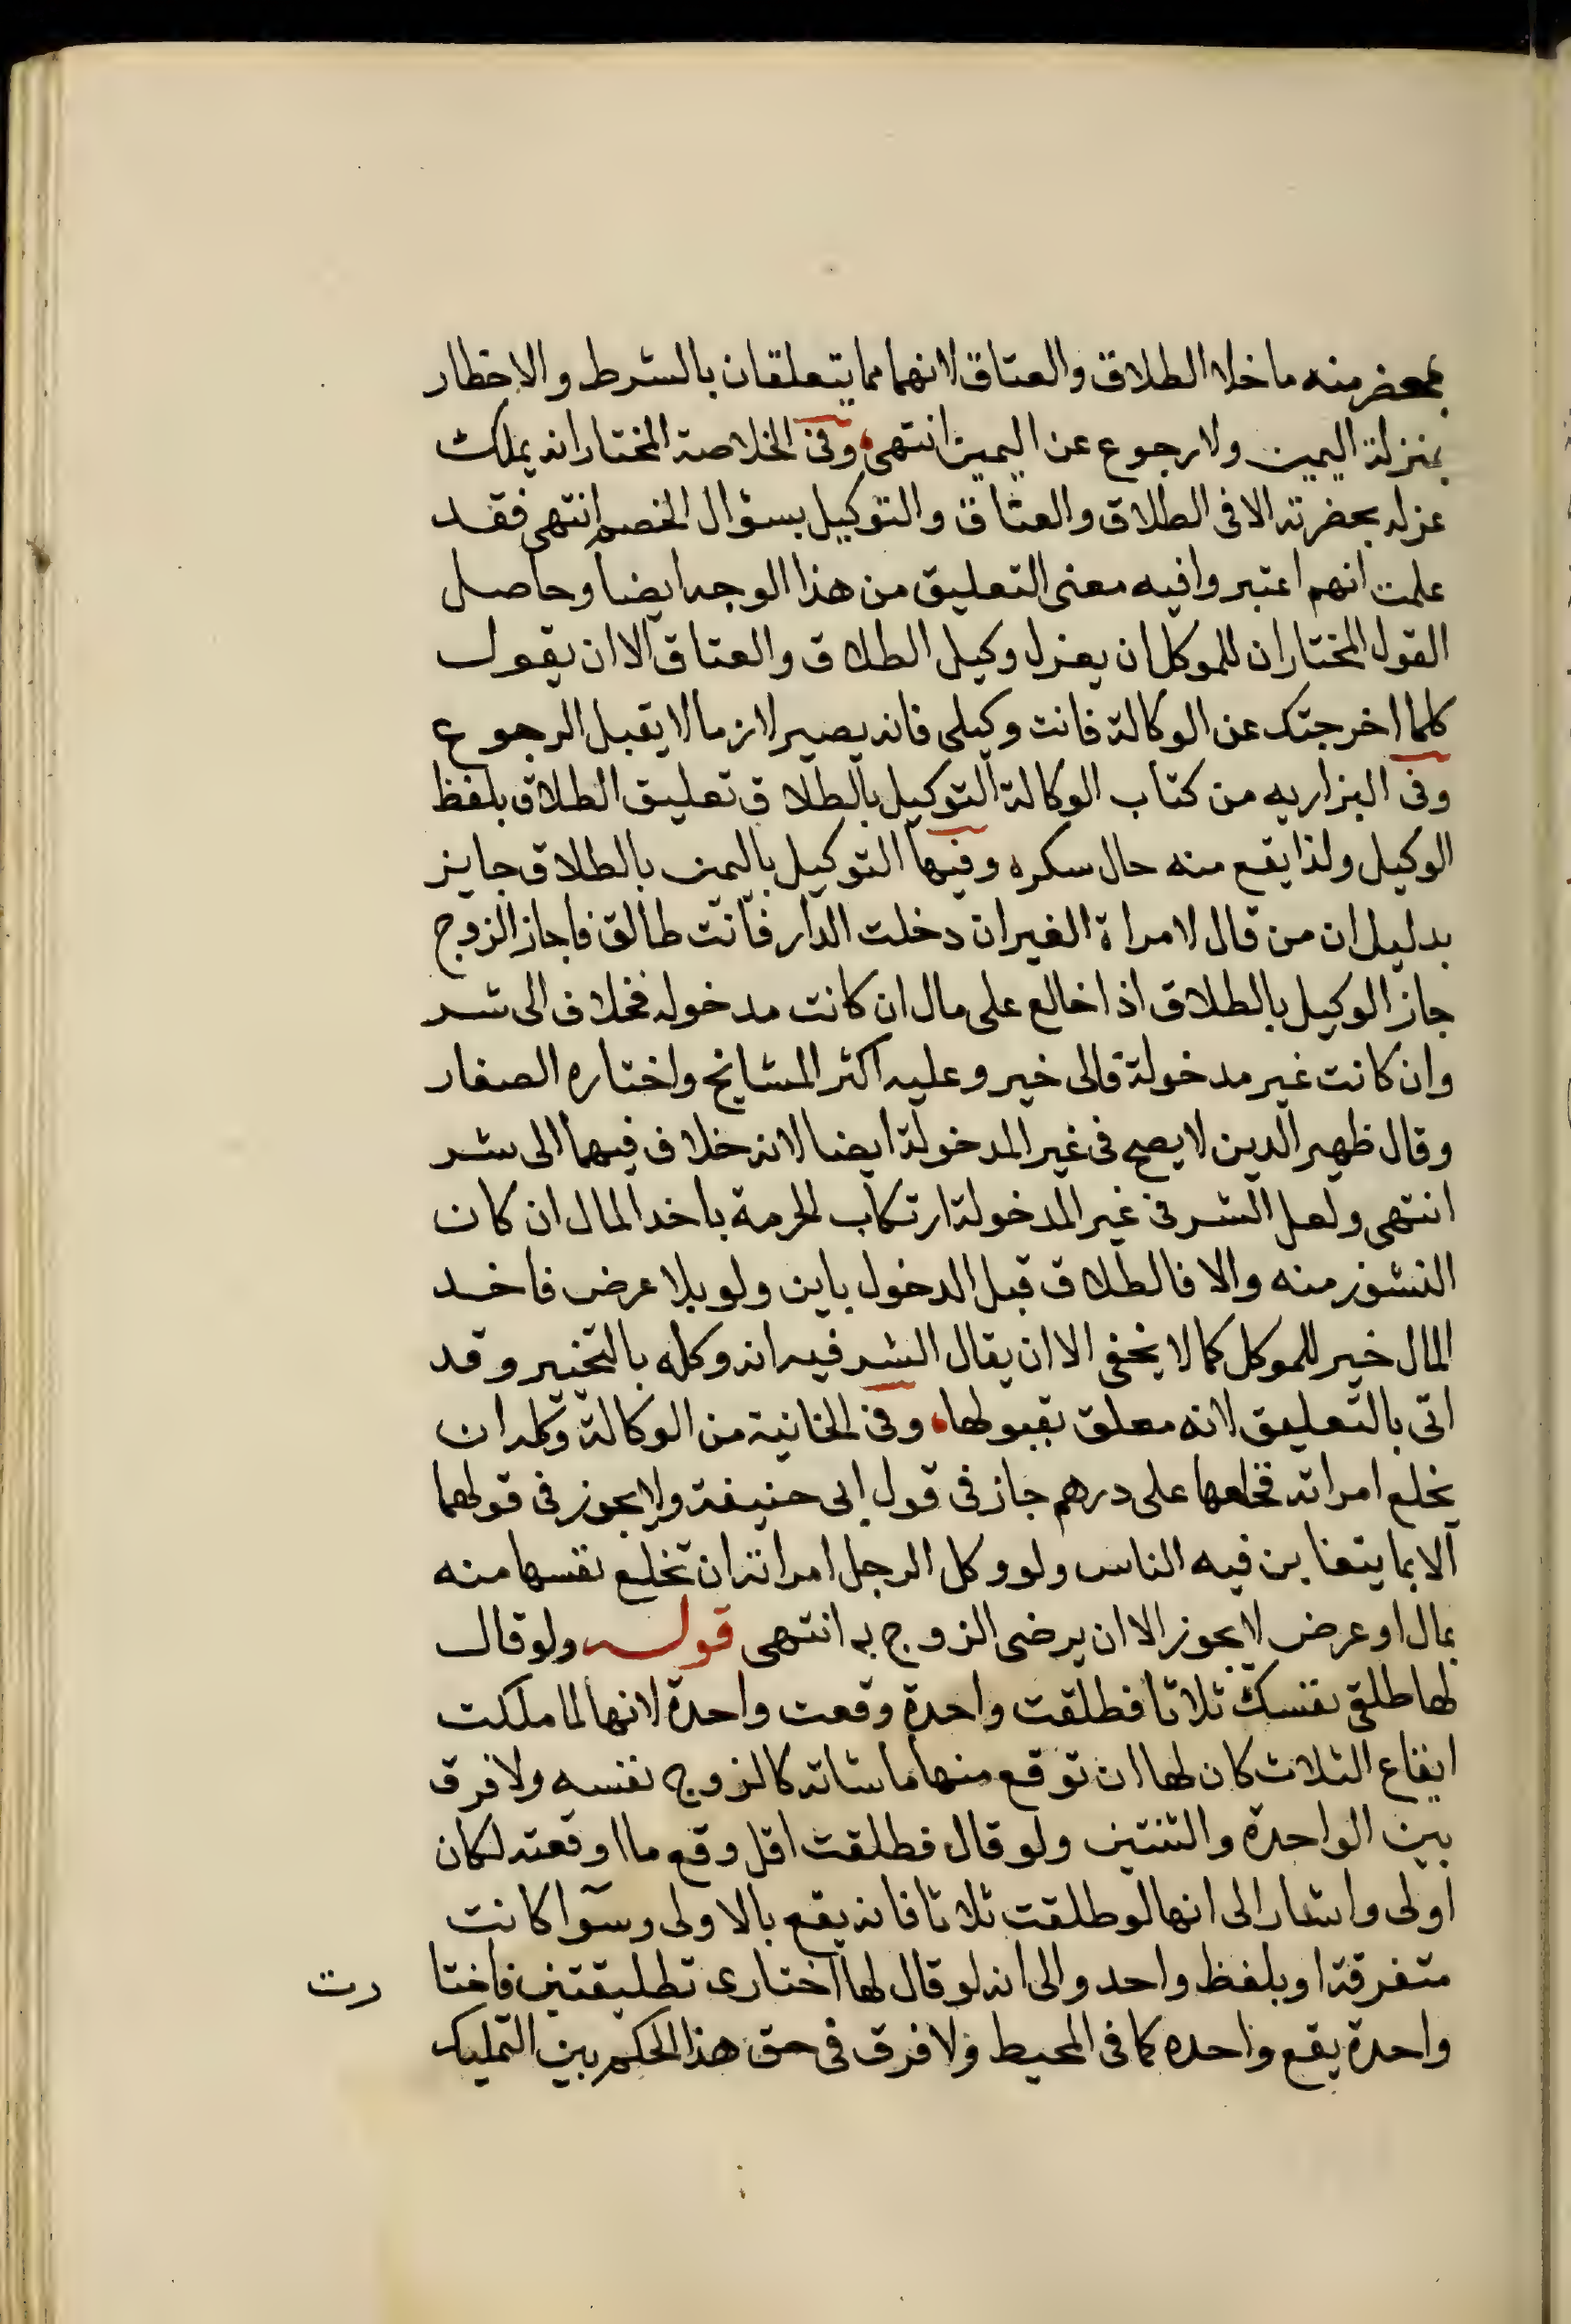 بمحضر منه ما خلا الطلاق والعتاق لانهما مما يتعلقان بالشرط والاخطار
بمنزلة اليمين ولا رجوع عن اليمين انتهى وفى الخلاصة المختار انه يملك
عزله بحضرته الا فى الطلاق والعتاق والتوكيل بسؤال الخصم انتهى فقد
علمت انهم اعتبروا فيه معنى التعليق من هذا الوجه ايضا وحاصل
القول المختار ان للموكل ان يعزل وكيل الطلاق والعتاق الا ان يقول
كلما اخرجتك عن الوكالة فانت وكيلى فانه يصير لازما لا يقبل الرجوع
وفى البزازيه من كتاب الوكالة التوكيل بالطلاق تعليق الطلاق بلفظ
الوكيل ولذا يقع منه حال سكره وفيها التوكيل باليمين بالطلاق جايز
بدليل ان من قال لامراة الغير ان دخلت الدار فانت طالق فاجاز الزوج
جاز الوكيل بالطلاق اذا خالع على مال ان كانت مدخوله فخلاف الى شر
وان كانت غير مدخولة فالى خير وعليه اكثر المشايخ واختاره الصفار
وقال ظهير الدين لا يصح فى غير المدخولة ايضا لانه خلاف فيهما الى شر
انتهى ولعل الشر فى غير المدخولة ارتكاب الحرمة باخد المال ان كان
النشوز منه والا فالطلاق قبل الدخول باين ولو بلا عرض فاخد
المال خير للموكل كما لا يخفى الا ان يقال الشر فيه انه وكله بالتنجيز وقد
اتى بالتعليق لانه معلق بقبولها وفى الخانية من الوكالة وكله ان
يخلع امراته فخلعها على درهم جاز فى قول ابى حنيفة ولا يجوز فى قولهما
الا بما يتغابن فيه الناس ولو وكل الرجل امراته ان تخلع نفسها منه
بمال او عرض لا يجوز الا ان يرضى الزوج به انتهى قوله ولو قال
لها طلقى نفسك ثلاثا فطلقت واحدة وقعت واحدة لانها لما ملكت
ايقاع الثلاث كان لها ان توقع منها ما شاته كالزوج نفسه ولا فرق
بين الواحدة والثنتين ولو قال فطلقت اقل وقع ما اوقعته لكان
اولى واشار الى انها لو طلقت ثلاثا فانه يقع بالاولى وسوآ كانت
متفرقة او بلفظ واحد والى انه لو قال لها اختارى تطليقتين فاختا رت
واحدة يقع واحده كما فى المحيط ولا فرق فى حق هذا الحكم بين التمليك